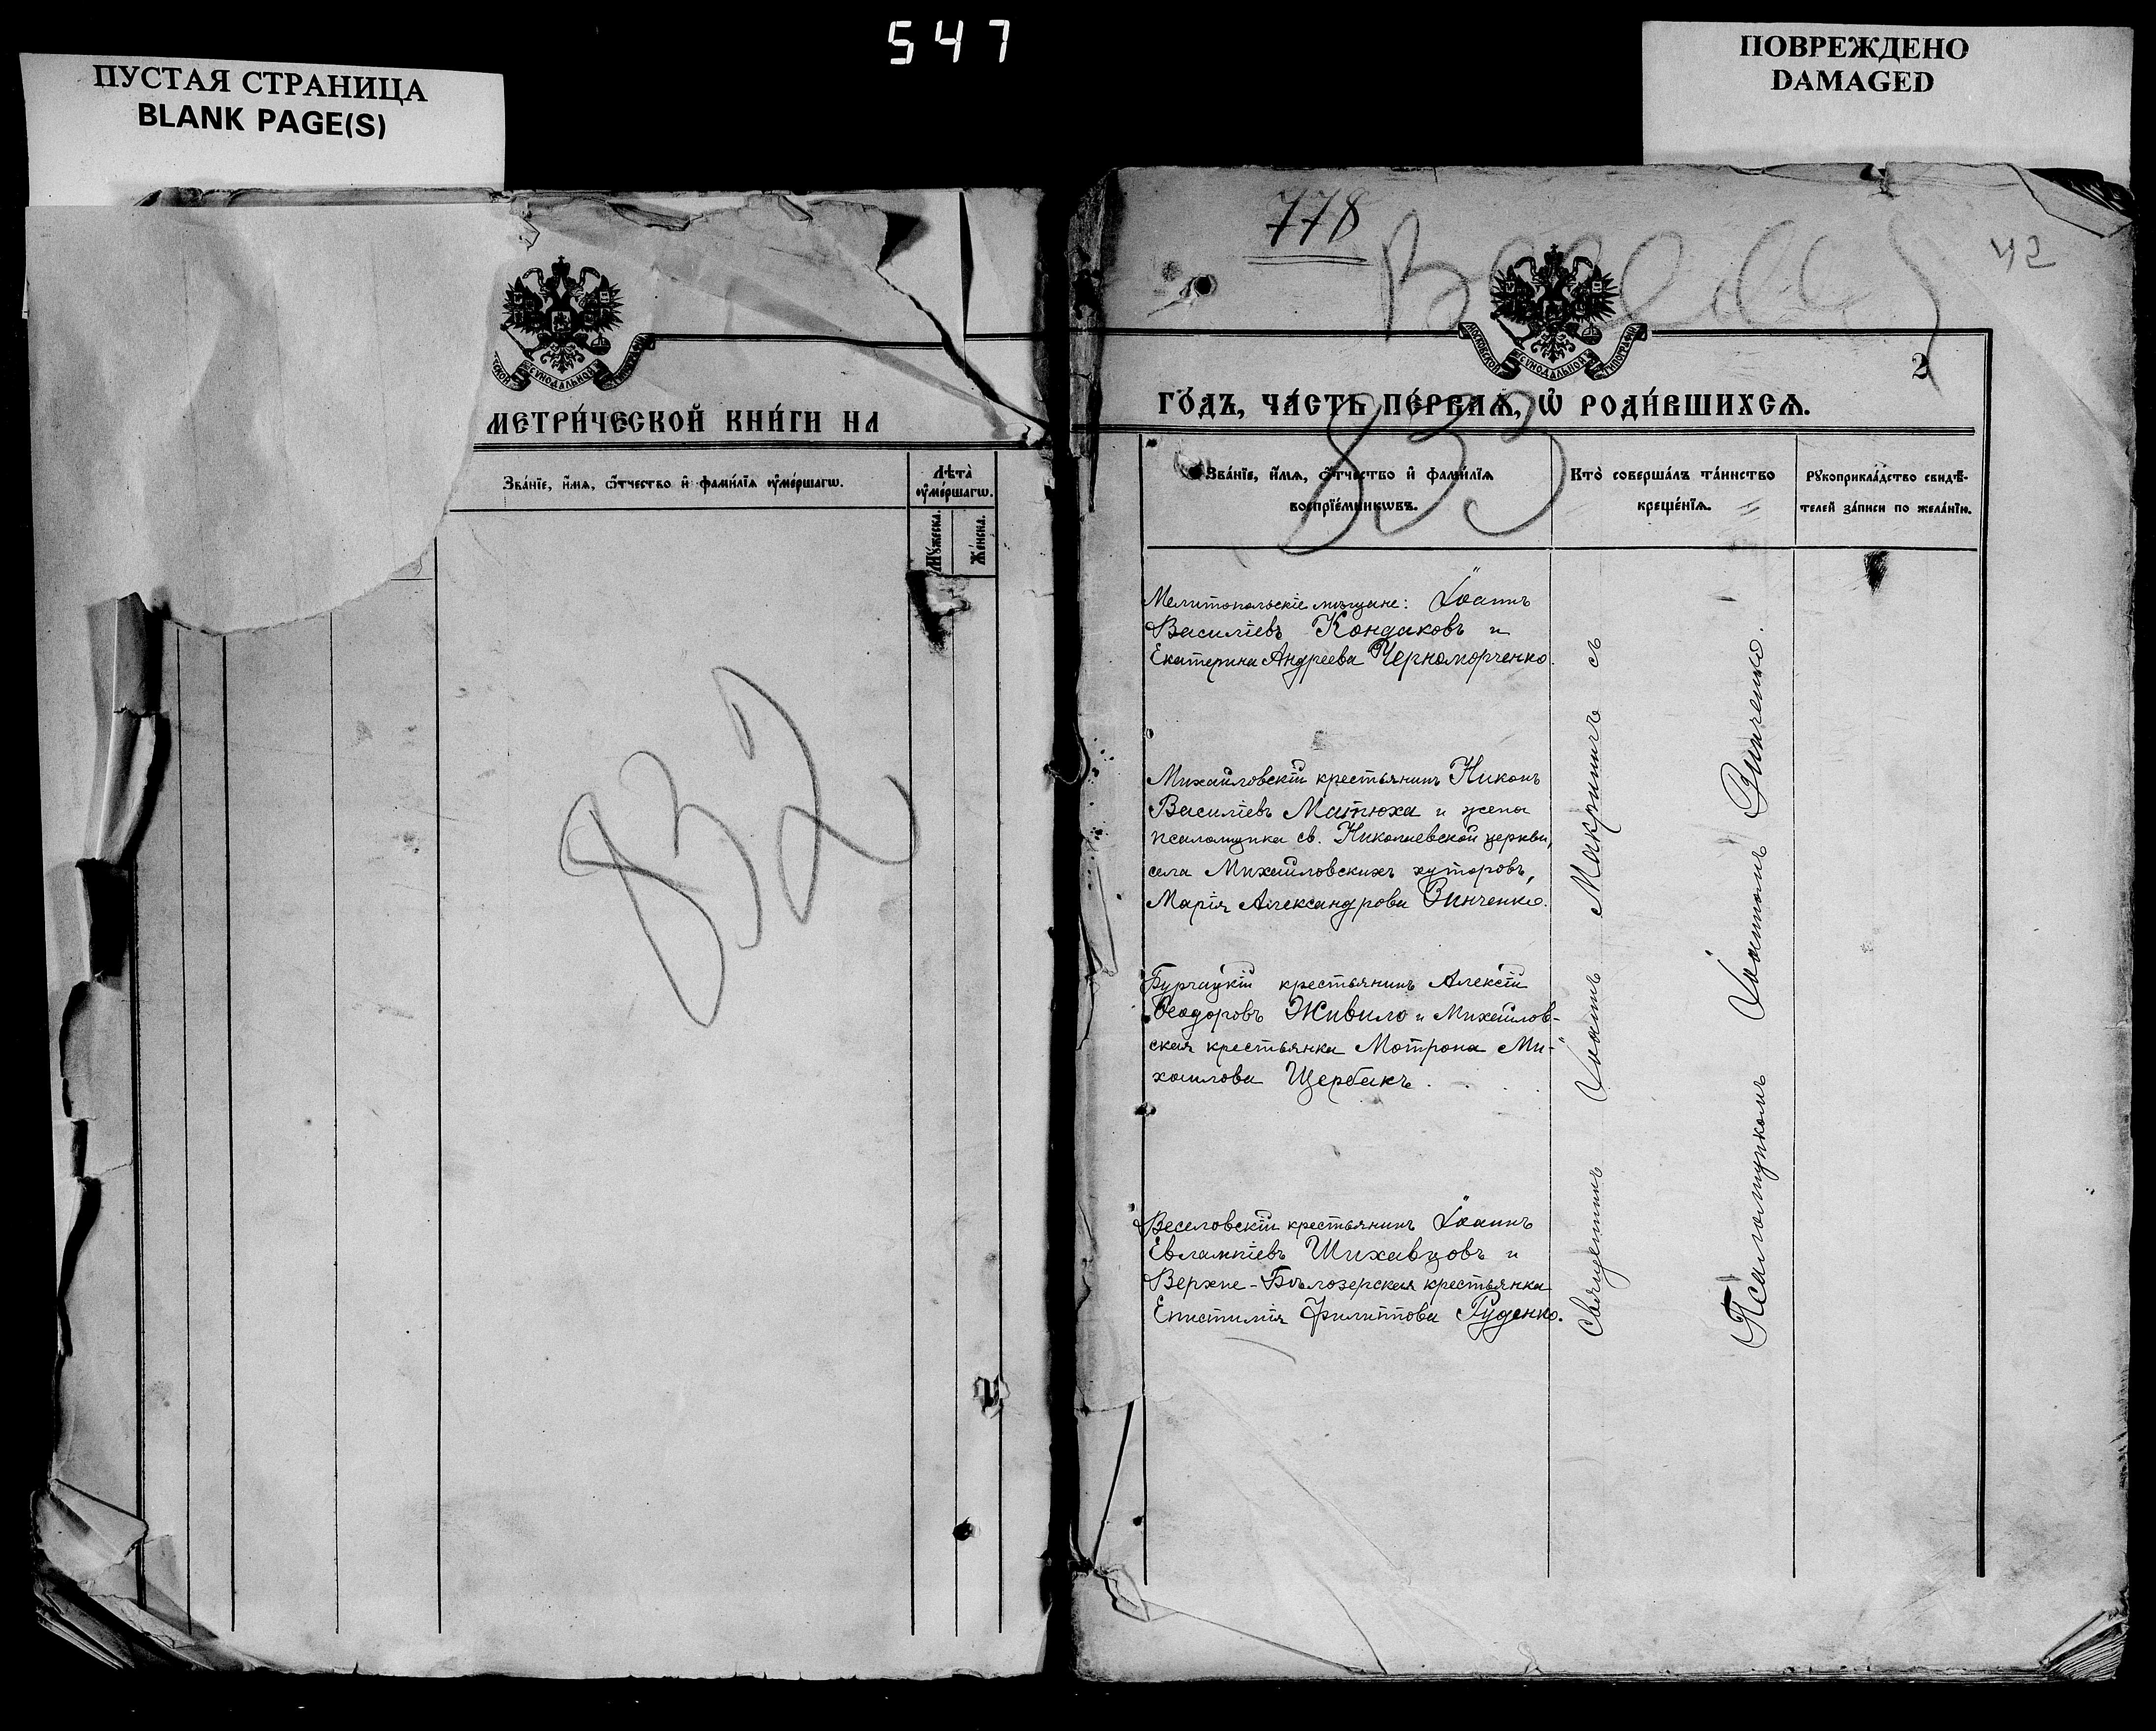 547
ПУСТАЯ СТРАНИЦА
BLANK PAGE(S)
СУНОДАЛЬНОЙ
МЕТРИ́ЧЕСКОЙ КНИ́ГИ НА
Зва́нїе, и҆́мѧ, ѻ҆́тчество и҆ фами́лїѧ ᲂу҆ме́ршагѡ.
Лѣта̀
ᲂу҆ме́ршагѡ.
Мꙋ́жеска.
Же́нска.
832
ПОВРЕЖДЕНО
DAMAGED
778
42
МОСКОВСКОЙ СУНОДАЛЬНОЙ ТИПОГРАФІИ
2
ГО́ДЪ, ЧА́СТЬ ПЕ́РВАѦ, Ѡ҆ РОДИ́ВШИХСѦ.
833
Зва́нїе, и҆́мѧ, ѻ҆́тчество и҆ фами́лїѧ
воспрїе́мникѡвъ.
Кто̀ соверша́лъ та́инство
креще́нїѧ.
Рꙋкоприкла́дство свидѣ́-
телей за́писи по жела́нїю.
Мелитопольскіе мѣщане: Іоаннъ
Василіевъ Кондаковъ и
Екатерина Андреева Черноморченко.
Михайловскій крестьянинъ Никонъ
Василіевъ Матюха и жена
псаломщика св. Николаевской церкви,
села Михайловскихъ хуторовъ,
Марія Александрова Винченко.
Бурчацкій крестьянинъ Алексій
Ѳеодоровъ Живило и Михайлов-
ская крестьянка Мотрона Ми-
хаилова Щербакъ.
Веселовскій крестьянинъ Іоаннъ
Евлампіевъ Шихавцовъ и
Верхне-Бѣлозерская крестьянка
Епистимія Филиппова Руденко.
Священникъ Іоаннъ Макринничъ съ
Псаломщикомъ Іоанномъ Винченко.